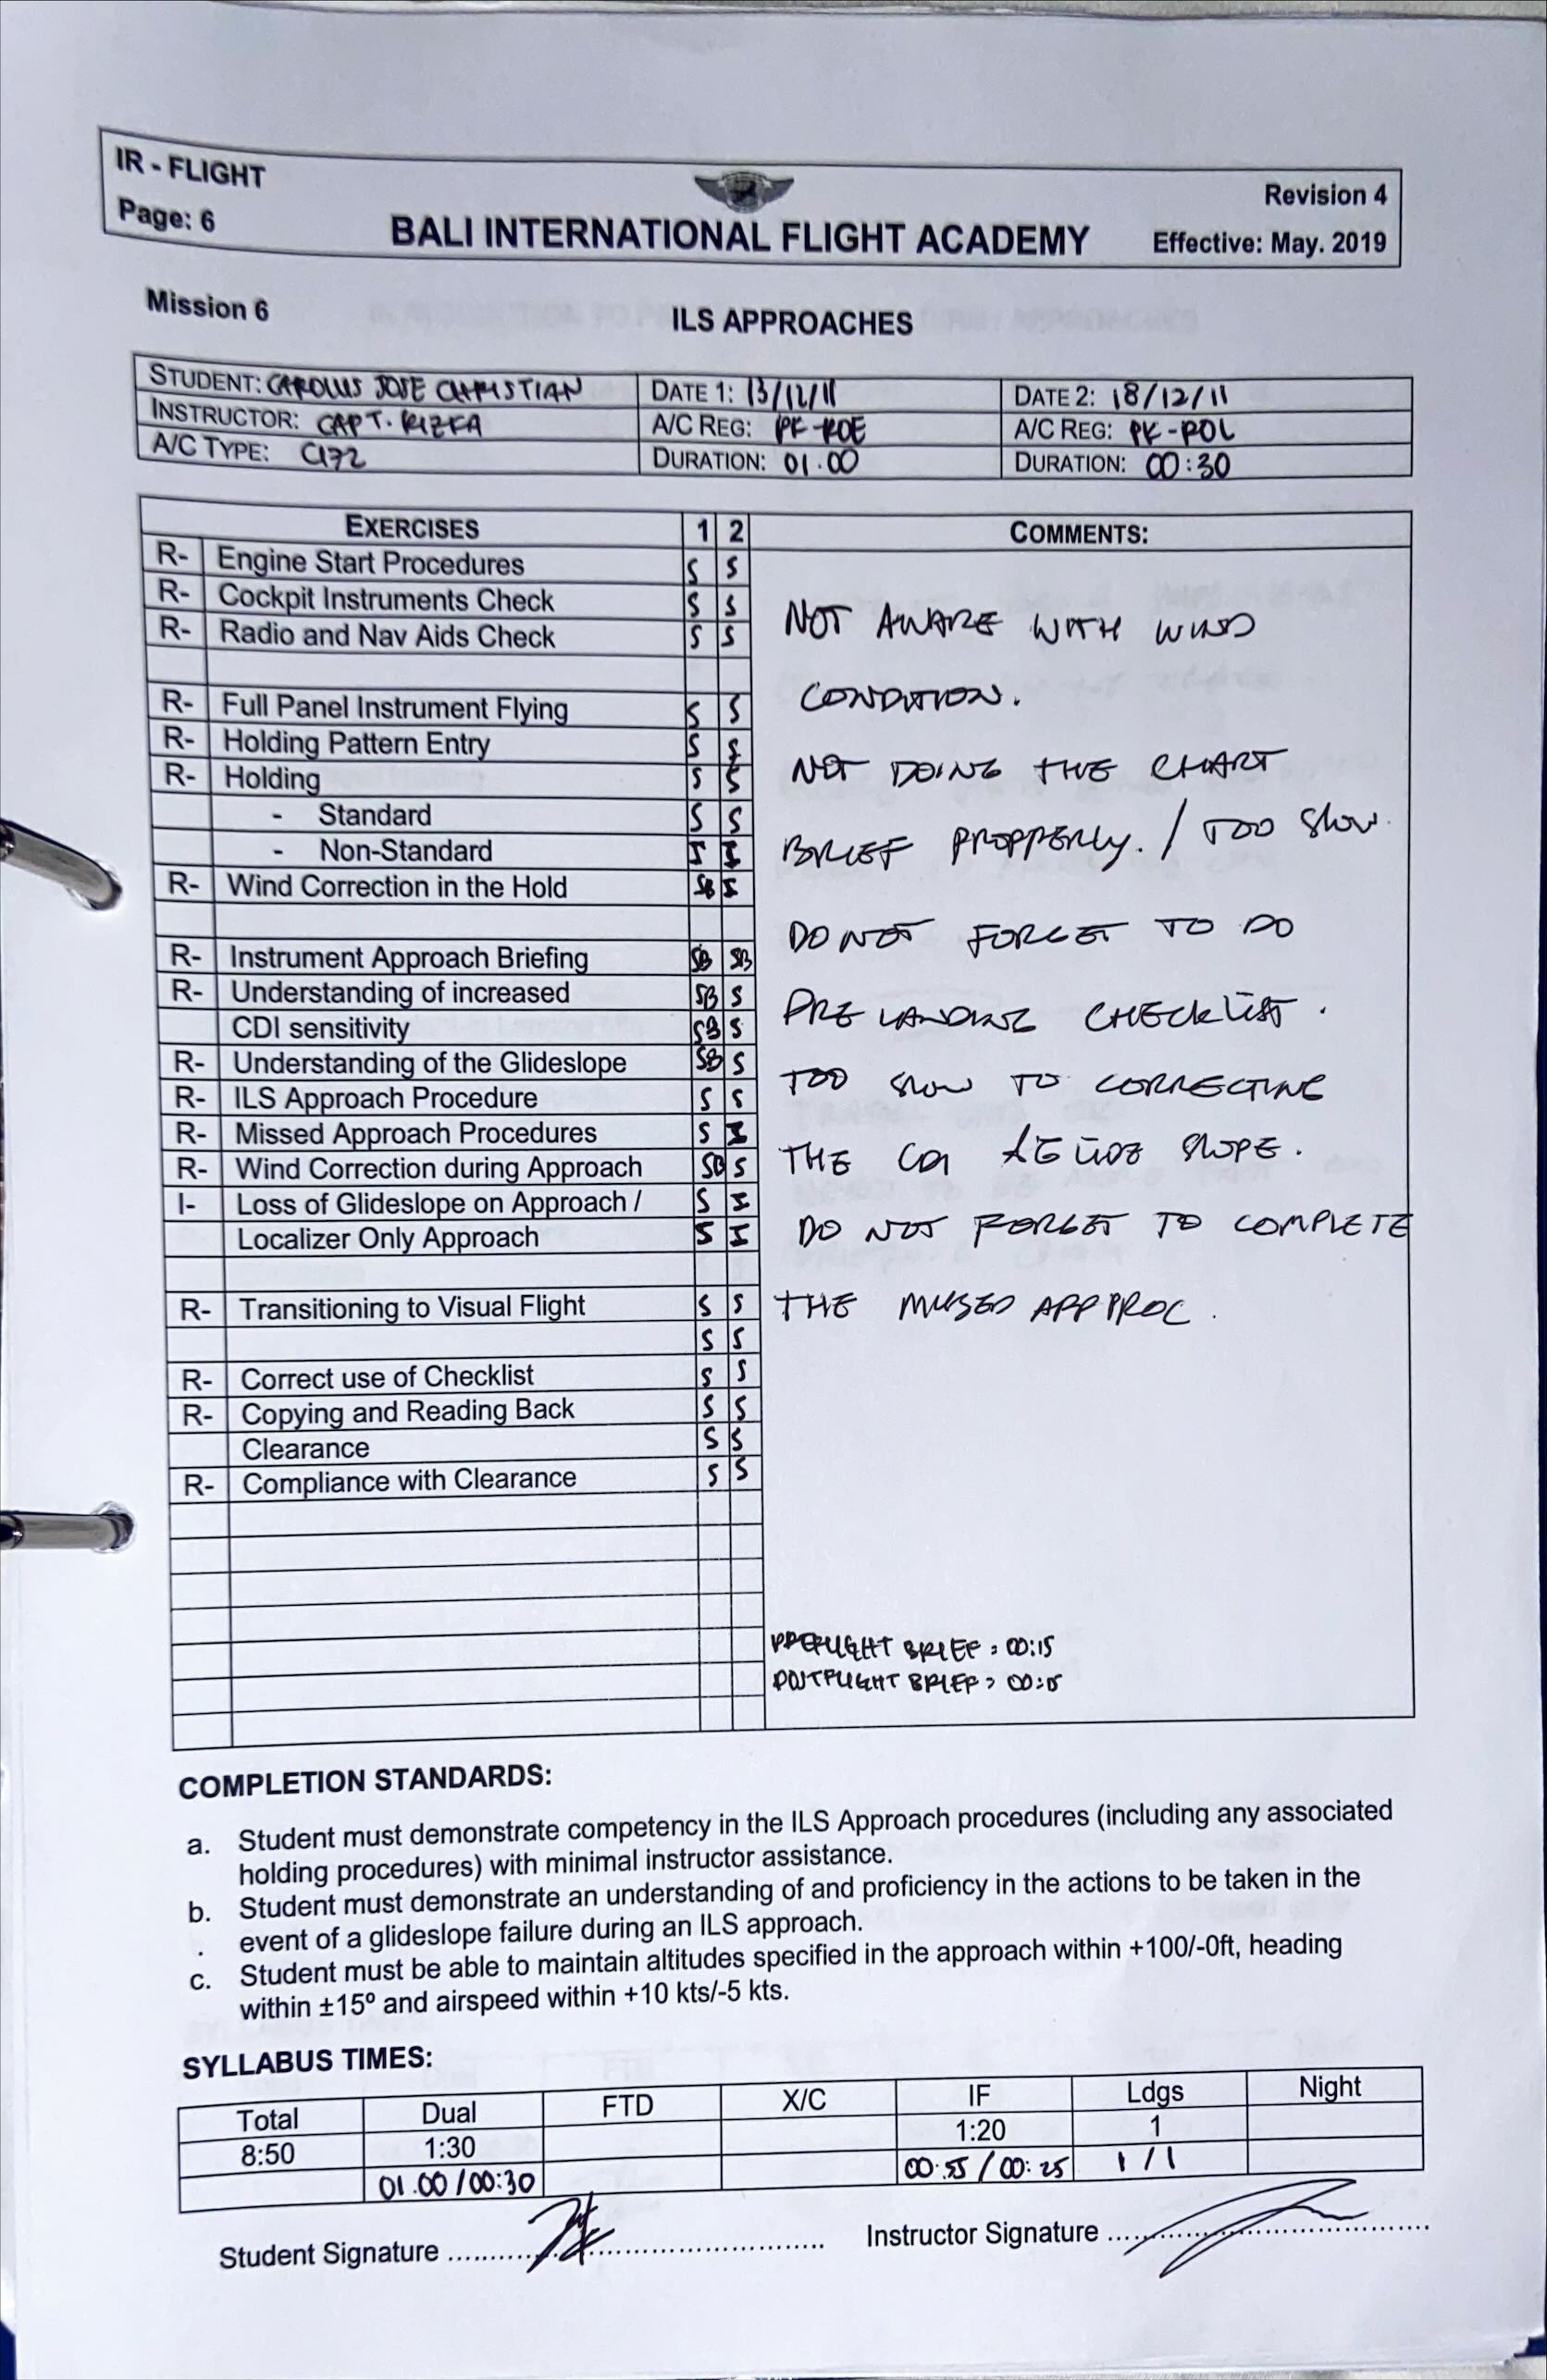 IR - FLIGHT
Page: 6
BALI INTERNATIONAL FLIGHT ACADEMY
Revision 4
Effective: May. 2019
Mission 6
ILS APPROACHES
STUDENT: CAROLUS JOSE CHRISTIAN DATE 1: 13/12/11 DATE 2: 18/12/11
INSTRUCTOR: CAPT. RIZKA A/C REG: PK-ROE A/C REG: PK-ROL
A/C TYPE: C172 DURATION: 01.00 DURATION: 00:30
EXERCISES 1 2 COMMENTS:
R- Engine Start Procedures S S
R- Cockpit Instruments Check S S
R- Radio and Nav Aids Check S S
R- Full Panel Instrument Flying S S
R- Holding Pattern Entry S S
R- Holding S S
- Standard S S
- Non-Standard I I
R- Wind Correction in the Hold SB I
R- Instrument Approach Briefing SB SB
R- Understanding of increased SB S
CDI sensitivity SB S
R- Understanding of the Glideslope SB S
R- ILS Approach Procedure S S
R- Missed Approach Procedures S I
R- Wind Correction during Approach SB S
I- Loss of Glideslope on Approach / S I
Localizer Only Approach S I
R- Transitioning to Visual Flight S S
S S
R- Correct use of Checklist S S
R- Copying and Reading Back S S
Clearance S S
R- Compliance with Clearance S S
NOT AWARE WITH WIND
CONDITION.
NOT DOING THE CHART
BRIEF PROPPERLY. / TOO Slow.
DO NOT FORGET TO DO
PRE LANDING CHECKLIST.
TOO SLOW TO CORRECTING
THE CDI SLOPE.
DO NOT FORGET TO COMPLETE
THE MISSED APPROC.
PREFLIGHT BRIEF : 00:15
POSTFLIGHT BRIEF : 00:15
COMPLETION STANDARDS:
a. Student must demonstrate competency in the ILS Approach procedures (including any associated
holding procedures) with minimal instructor assistance.
b. Student must demonstrate an understanding of and proficiency in the actions to be taken in the
. event of a glideslope failure during an ILS approach.
c. Student must be able to maintain altitudes specified in the approach within +100/-0ft, heading
within ±15º and airspeed within +10 kts/-5 kts.
SYLLABUS TIMES:
Total Dual FTD X/C IF Ldgs Night
8:50 1:30 1:20 1
01.00 / 00:30 00:55 / 00:25 1 / 1
Student Signature ........................................ Instructor Signature ........................................